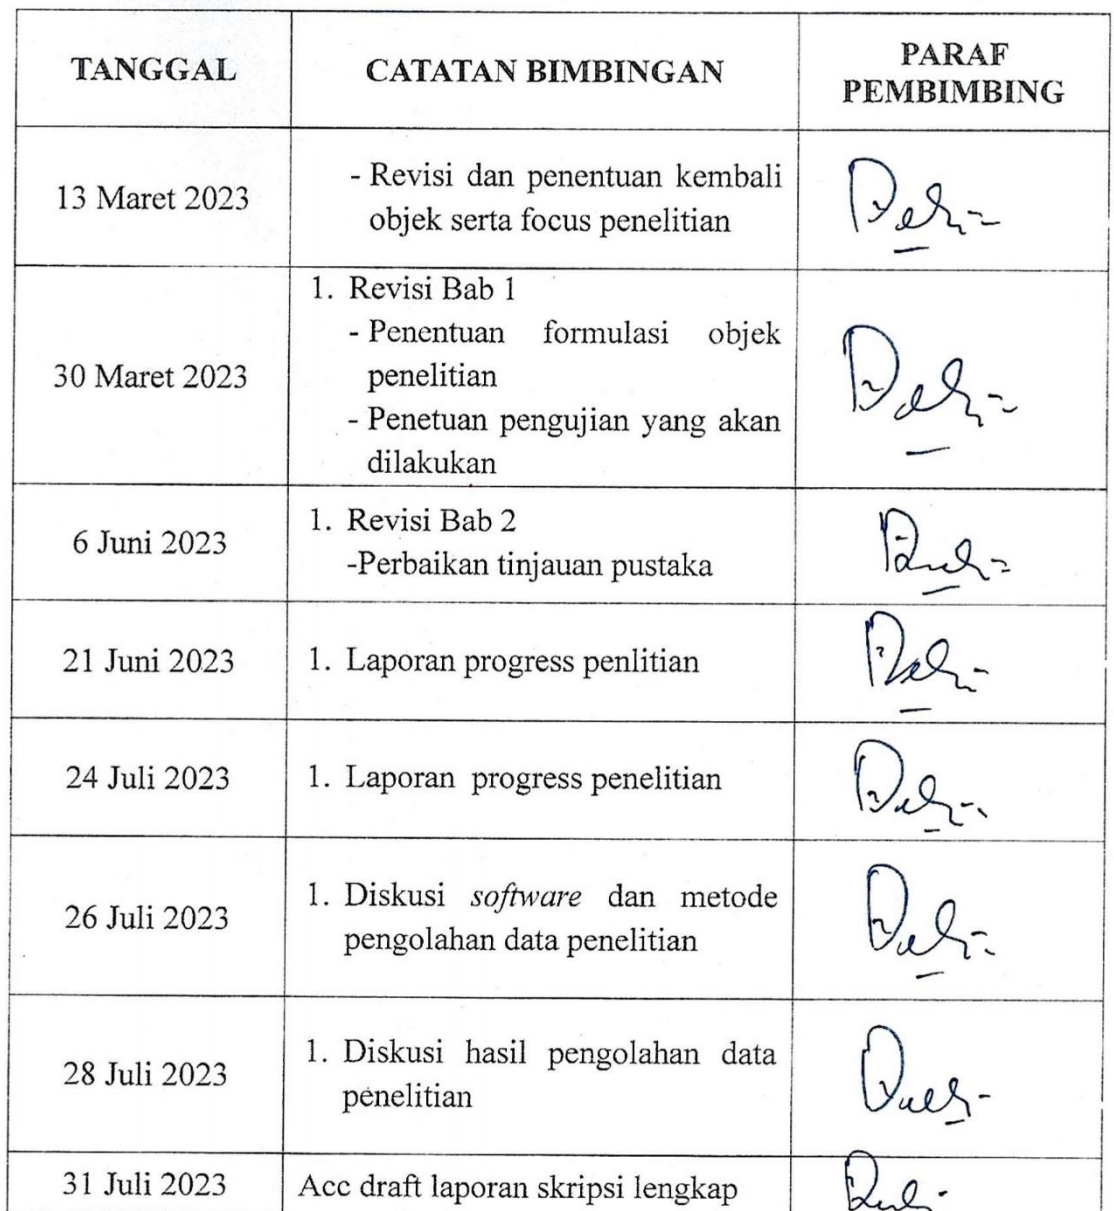 TANGGAL
CATATAN BIMBINGAN
PARAF
PEMBIMBING
13 Maret 2023
- Revisi dan penentuan kembali
objek serta focus penelitian
30 Maret 2023
1. Revisi Bab 1
- Penentuan formulasi objek
penelitian
- Penetuan pengujian yang akan
dilakukan
6 Juni 2023
1. Revisi Bab 2
-Perbaikan tinjauan pustaka
21 Juni 2023
1. Laporan progress penlitian
24 Juli 2023
1. Laporan progress penelitian
26 Juli 2023
1. Diskusi software dan metode
pengolahan data penelitian
28 Juli 2023
1. Diskusi hasil pengolahan data
penelitian
31 Juli 2023
Acc draft laporan skripsi lengkap